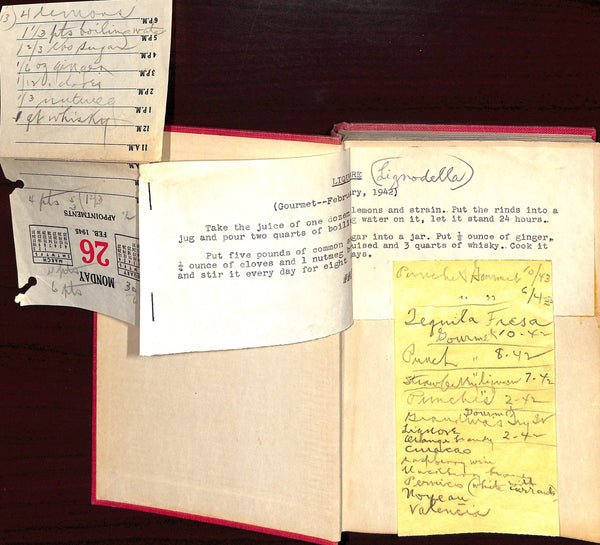 3) 4 lemons
1 1/3 pts boiling water
1 2/3 lbs sugar
1/6 oz ginger
1/12 o. cloves
1/3 nutmeg
1 qt whisky
6 P.M.
5 P.M.
4 P.M.
3 P.M.
2 P.M.
1 P.M.
12 M.
11 A.M.
4 pts
APPOINTMENTS
FEB. 1945
26
MONDAY
MARCH
6 pts
LIQUORE
Lignodella
(Gourmet--February, 1942)
Take the juice of one dozen lemons and strain. Put the rinds into a
jug and pour two quarts of boiling water on it, let it stand 24 hours.
Put five pounds of common sugar into a jar. Put ½ ounce of ginger,
¼ ounce of cloves and 1 nutmeg bruised and 3 quarts of whisky. Cook it
and stir it every day for eight days.
Punches Gourmet 10/43
" " 6/43
Tequila Fresa
Gourmet 10-42
Punch " 8-42
Strawberry liqueur 7-42
Punches 2-42
Gourmet
Liquore
Orange brandy 2-42
Curacao
raspberry wine
Pernico (white with currants)
Noyeau
Valencia